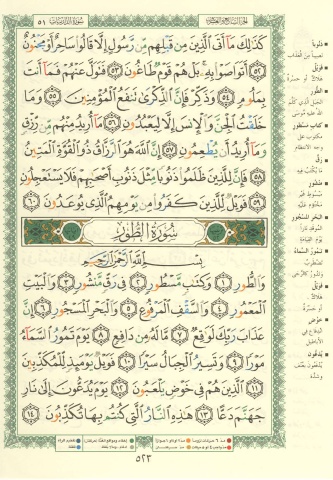 الجزء السابع والعشرون
سورة الذاريات ٥١
كَذَٰلِكَ مَآ أَتَى ٱلَّذِينَ مِن قَبْلِهِم مِّن رَّسُولٍ إِلَّا قَالُوا۟ سَاحِرٌ أَوْ مَجْنُونٌ
﴿٥٢﴾ أَتَوَاصَوْا۟ بِهِۦ ۚ بَلْ هُمْ قَوْمٌ طَاغُونَ ﴿٥٣﴾ فَتَوَلَّ عَنْهُمْ فَمَآ أَنتَ
بِمَلُومٍ ﴿٥٤﴾ وَذَكِّرْ فَإِنَّ ٱلذِّكْرَىٰ تَنفَعُ ٱلْمُؤْمِنِينَ ﴿٥٥﴾ وَمَا
خَلَقْتُ ٱلْجِنَّ وَٱلْإِنسَ إِلَّا لِيَعْبُدُونِ ﴿٥٦﴾ مَآ أُرِيدُ مِنْهُم مِّن رِّزْقٍ
وَمَآ أُرِيدُ أَن يُطْعِمُونِ ﴿٥٧﴾ إِنَّ ٱللَّهَ هُوَ ٱلرَّزَّاقُ ذُو ٱلْقُوَّةِ ٱلْمَتِينُ
﴿٥٨﴾ فَإِنَّ لِلَّذِينَ ظَلَمُوا۟ ذَنُوبًا مِّثْلَ ذَنُوبِ أَصْحَٰبِهِمْ فَلَا يَسْتَعْجِلُونِ
﴿٥٩﴾ فَوَيْلٌ لِّلَّذِينَ كَفَرُوا۟ مِن يَوْمِهِمُ ٱلَّذِى يُوعَدُونَ ﴿٦٠﴾
سُورَةُ الطُّورِ
بِسْمِ ٱللَّهِ ٱلرَّحْمَٰنِ ٱلرَّحِيمِ
وَٱلطُّورِ ﴿١﴾ وَكِتَٰبٍ مَّسْطُورٍ ﴿٢﴾ فِى رَقٍّ مَّنشُورٍ ﴿٣﴾ وَٱلْبَيْتِ
ٱلْمَعْمُورِ ﴿٤﴾ وَٱلسَّقْفِ ٱلْمَرْفُوعِ ﴿٥﴾ وَٱلْبَحْرِ ٱلْمَسْجُورِ ﴿٦﴾ إِنَّ
عَذَابَ رَبِّكَ لَوَٰقِعٌ ﴿٧﴾ مَّا لَهُۥ مِن دَافِعٍ ﴿٨﴾ يَوْمَ تَمُورُ ٱلسَّمَآءُ
مَوْرًا ﴿٩﴾ وَتَسِيرُ ٱلْجِبَالُ سَيْرًا ﴿١٠﴾ فَوَيْلٌ يَوْمَئِذٍ لِّلْمُكَذِّبِينَ
﴿١١﴾ ٱلَّذِينَ هُمْ فِى خَوْضٍ يَلْعَبُونَ ﴿١٢﴾ يَوْمَ يُدَعُّونَ إِلَىٰ نَارِ
جَهَنَّمَ دَعًّا ﴿١٣﴾ هَٰذِهِ ٱلنَّارُ ٱلَّتِى كُنتُم بِهَا تُكَذِّبُونَ ﴿١٤﴾
٥٢٣
ذنوبا
نصيبا من العذاب
فويل
هلاك أو حسرة
الطور
كتاب مسطور
رق
منشور
البحر المسجور
تمور السماء
فويل
خوض
يدعون